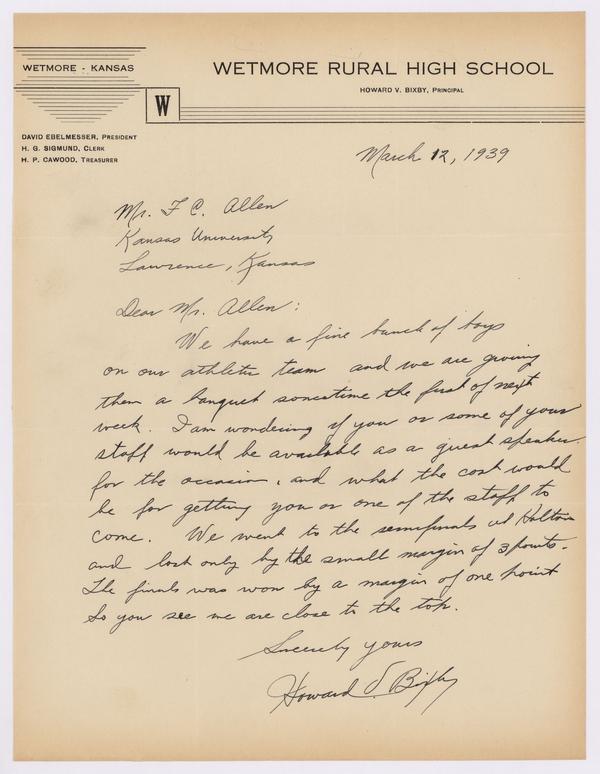 WETMORE - KANSAS
WETMORE RURAL HIGH SCHOOL
HOWARD V. BIXBY, PRINCIPAL
W
DAVID EBELMESSER, PRESIDENT
H. G. SIGMUND, CLERK
H. P. CAWOOD, TREASURER
March 12, 1939
Mr. F C. Allen
Kansas University
Lawrence, Kansas
Dear Mr. Allen:
We have a fine bunch of boys
on our athletic team and we are giving
them a banquet sometime the first of next
week. I am wondering if you or some of your
staff would be available as a guest speaker
for the occasion, and what the cost would
be for getting you or one of the staff to
come. We went to the semifinals at Holton
and lost only by the small margin of 3 points.
The finals was won by a margin of one point
So you see we are close to the top.
Sincerely yours
Howard V. Bixby